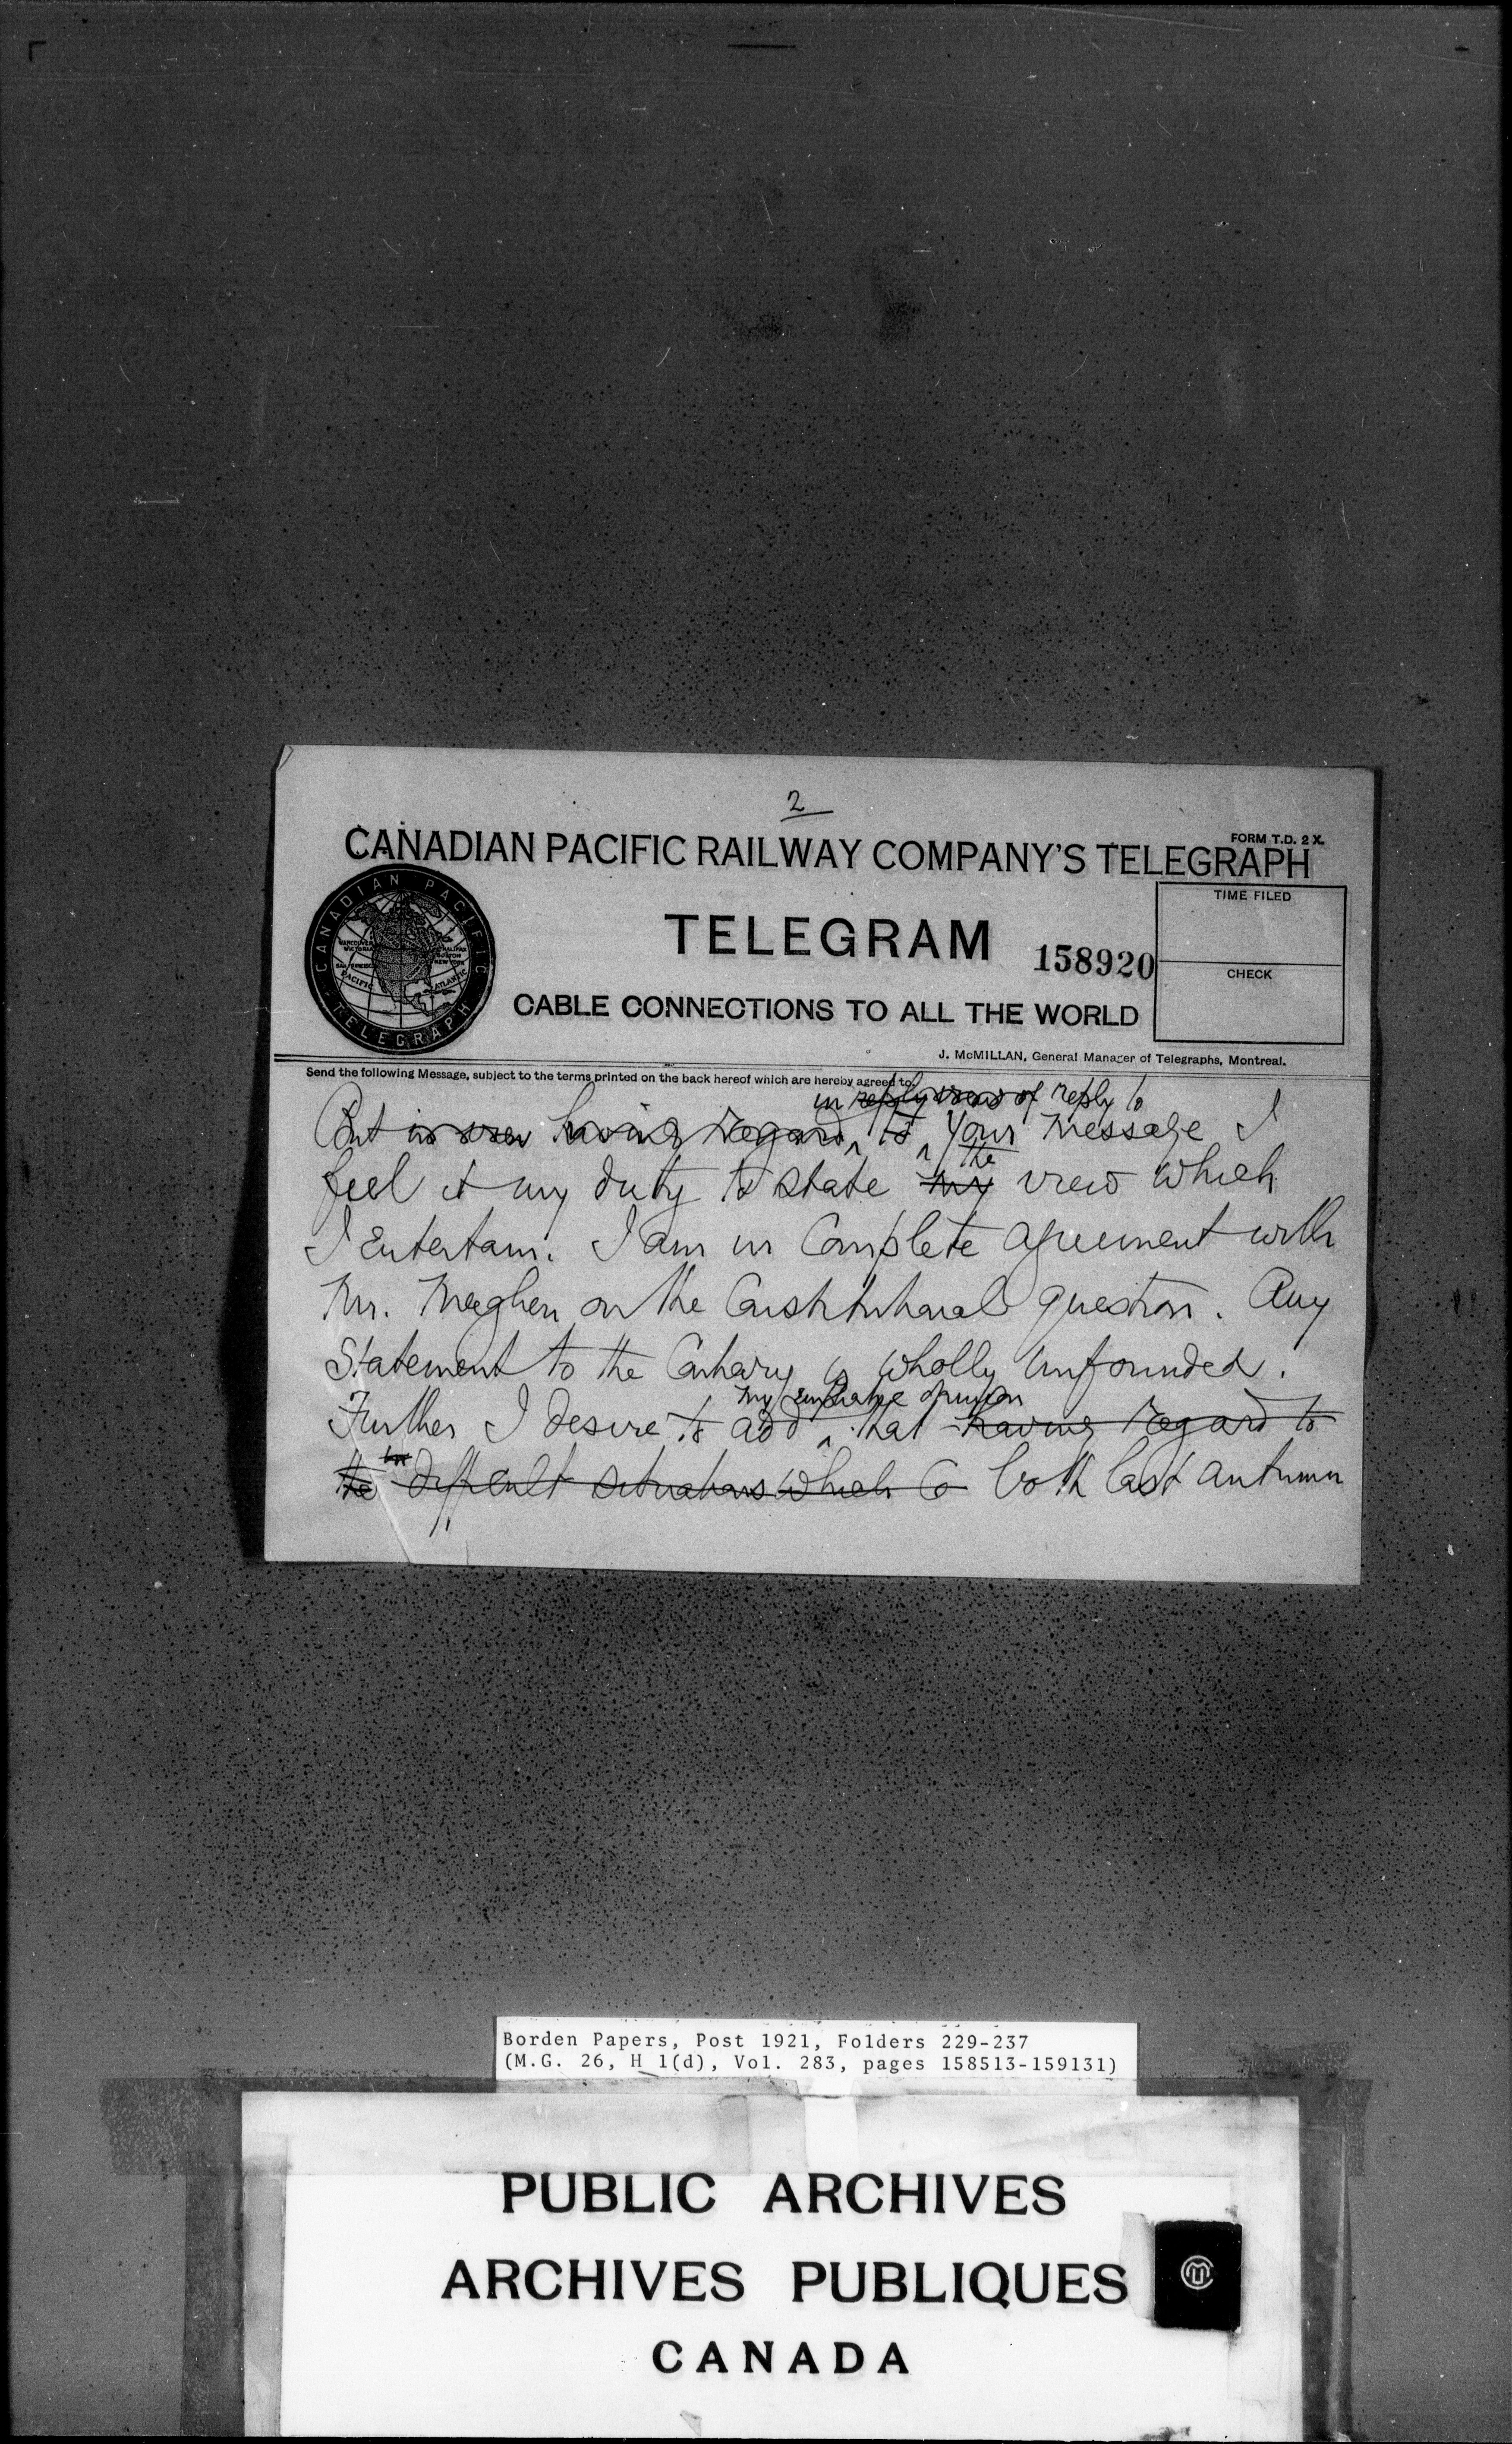 2
CANADIAN PACIFIC RAILWAY COMPANY'S TELEGRAPH
FORM T.D. 2 X.
CANADIAN PACIFIC
TELEGRAPH
VANCOUVER
VICTORIA
SAN FRANCISCO
PACIFIC
HALIFAX
BOSTON
NEW YORK
ATLANTIC
TELEGRAM
158920
TIME FILED
CHECK
CABLE CONNECTIONS TO ALL THE WORLD
J. McMILLAN, General Manager of Telegraphs, Montreal.
Send the following Message, subject to the terms printed on the back hereof which are hereby agreed to.
in reply view of reply to
But in view having regard to your message I
the
feel it my duty to state my view which
I entertain. I am in complete agreement with
Mr. Meighen on the Constitutional question. Any
Statement to the Contrary is wholly unfounded.
my emphatic opinion
Further I desire to add that having regard to
the difficult situations which both last autumn
Borden Papers, Post 1921, Folders 229-237
(M.G. 26, H 1(d), Vol. 283, pages 158513-159131)
PUBLIC ARCHIVES
ARCHIVES PUBLIQUES
CANADA